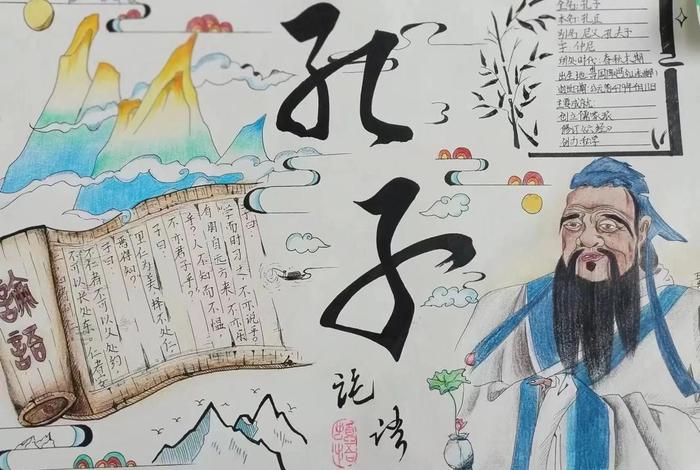 孔子
论语
論語
子曰:
"学而时习之,不亦说乎?
有朋自远方来,不亦乐
乎?人不知而不愠,
不亦君子乎?
子曰:
里仁为美,择不处仁,
焉得知?
子曰:
不仁者不可以久处约,
不可以长处乐。仁者安
全名:孔子
本名:孔丘
别名:尼父、孔夫子
字:仲尼
所处时代:春秋末期
出生地:鲁国陬邑
逝世日期:公元前479年4月11日
主要成就:
创立儒家
修订《六经》
创办私学